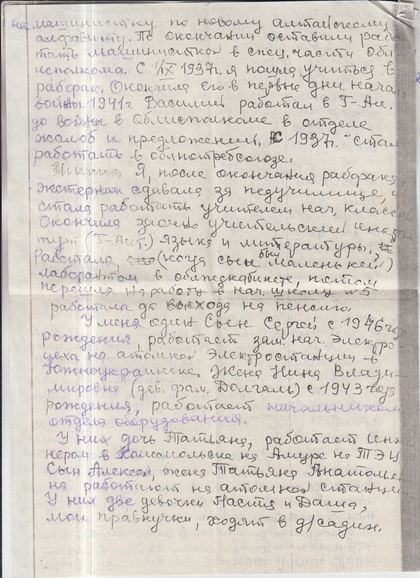 на машинистку по новому алтайскому
алфавиту. По окончании оставили рабо
тать машинисткой в спец. части Обл
исполкома. С 1/IX 1937г. я пошла учиться в
рабфак. Окончила его в первые дни нача
войны 1941г. Василий работал в Г-Ал.
до войны в Облисполкоме в отделе
жалоб и предложений. С 1937г. стал
работать в облпотребсоюзе.
Я, после окончания рабфака
экстерном сдавала за педучилище, и
стала работать учителем нач. класс
Окончила заочно учительский инс
тут (Г-Алт.) языка и литературы.
Работала, (когда сын был маленький)
лаборантом в облпедкабинете, потом
перешла на работу в нач. школу №5
работала до выхода на пенсию.
У меня один Сын Сергей с 1946го
рождения, работает зам. нач. Электро
цеха на атомной Электростанции в
Южноукраинске. Жена Нина Влади
мировна (дев. фам. Долгаль) с 1943 года
рождения, работает начальником
отдела оборудования.
У них дочь Татьяна, работает инже
нером в Комсомольске на Амуре на ТЭЦ
Сын Алексей, жена Татьяна Анатольев
на работают на атомной станции
У них две девочки Настя и Даша,
мои правнучки, ходят в д/садик.